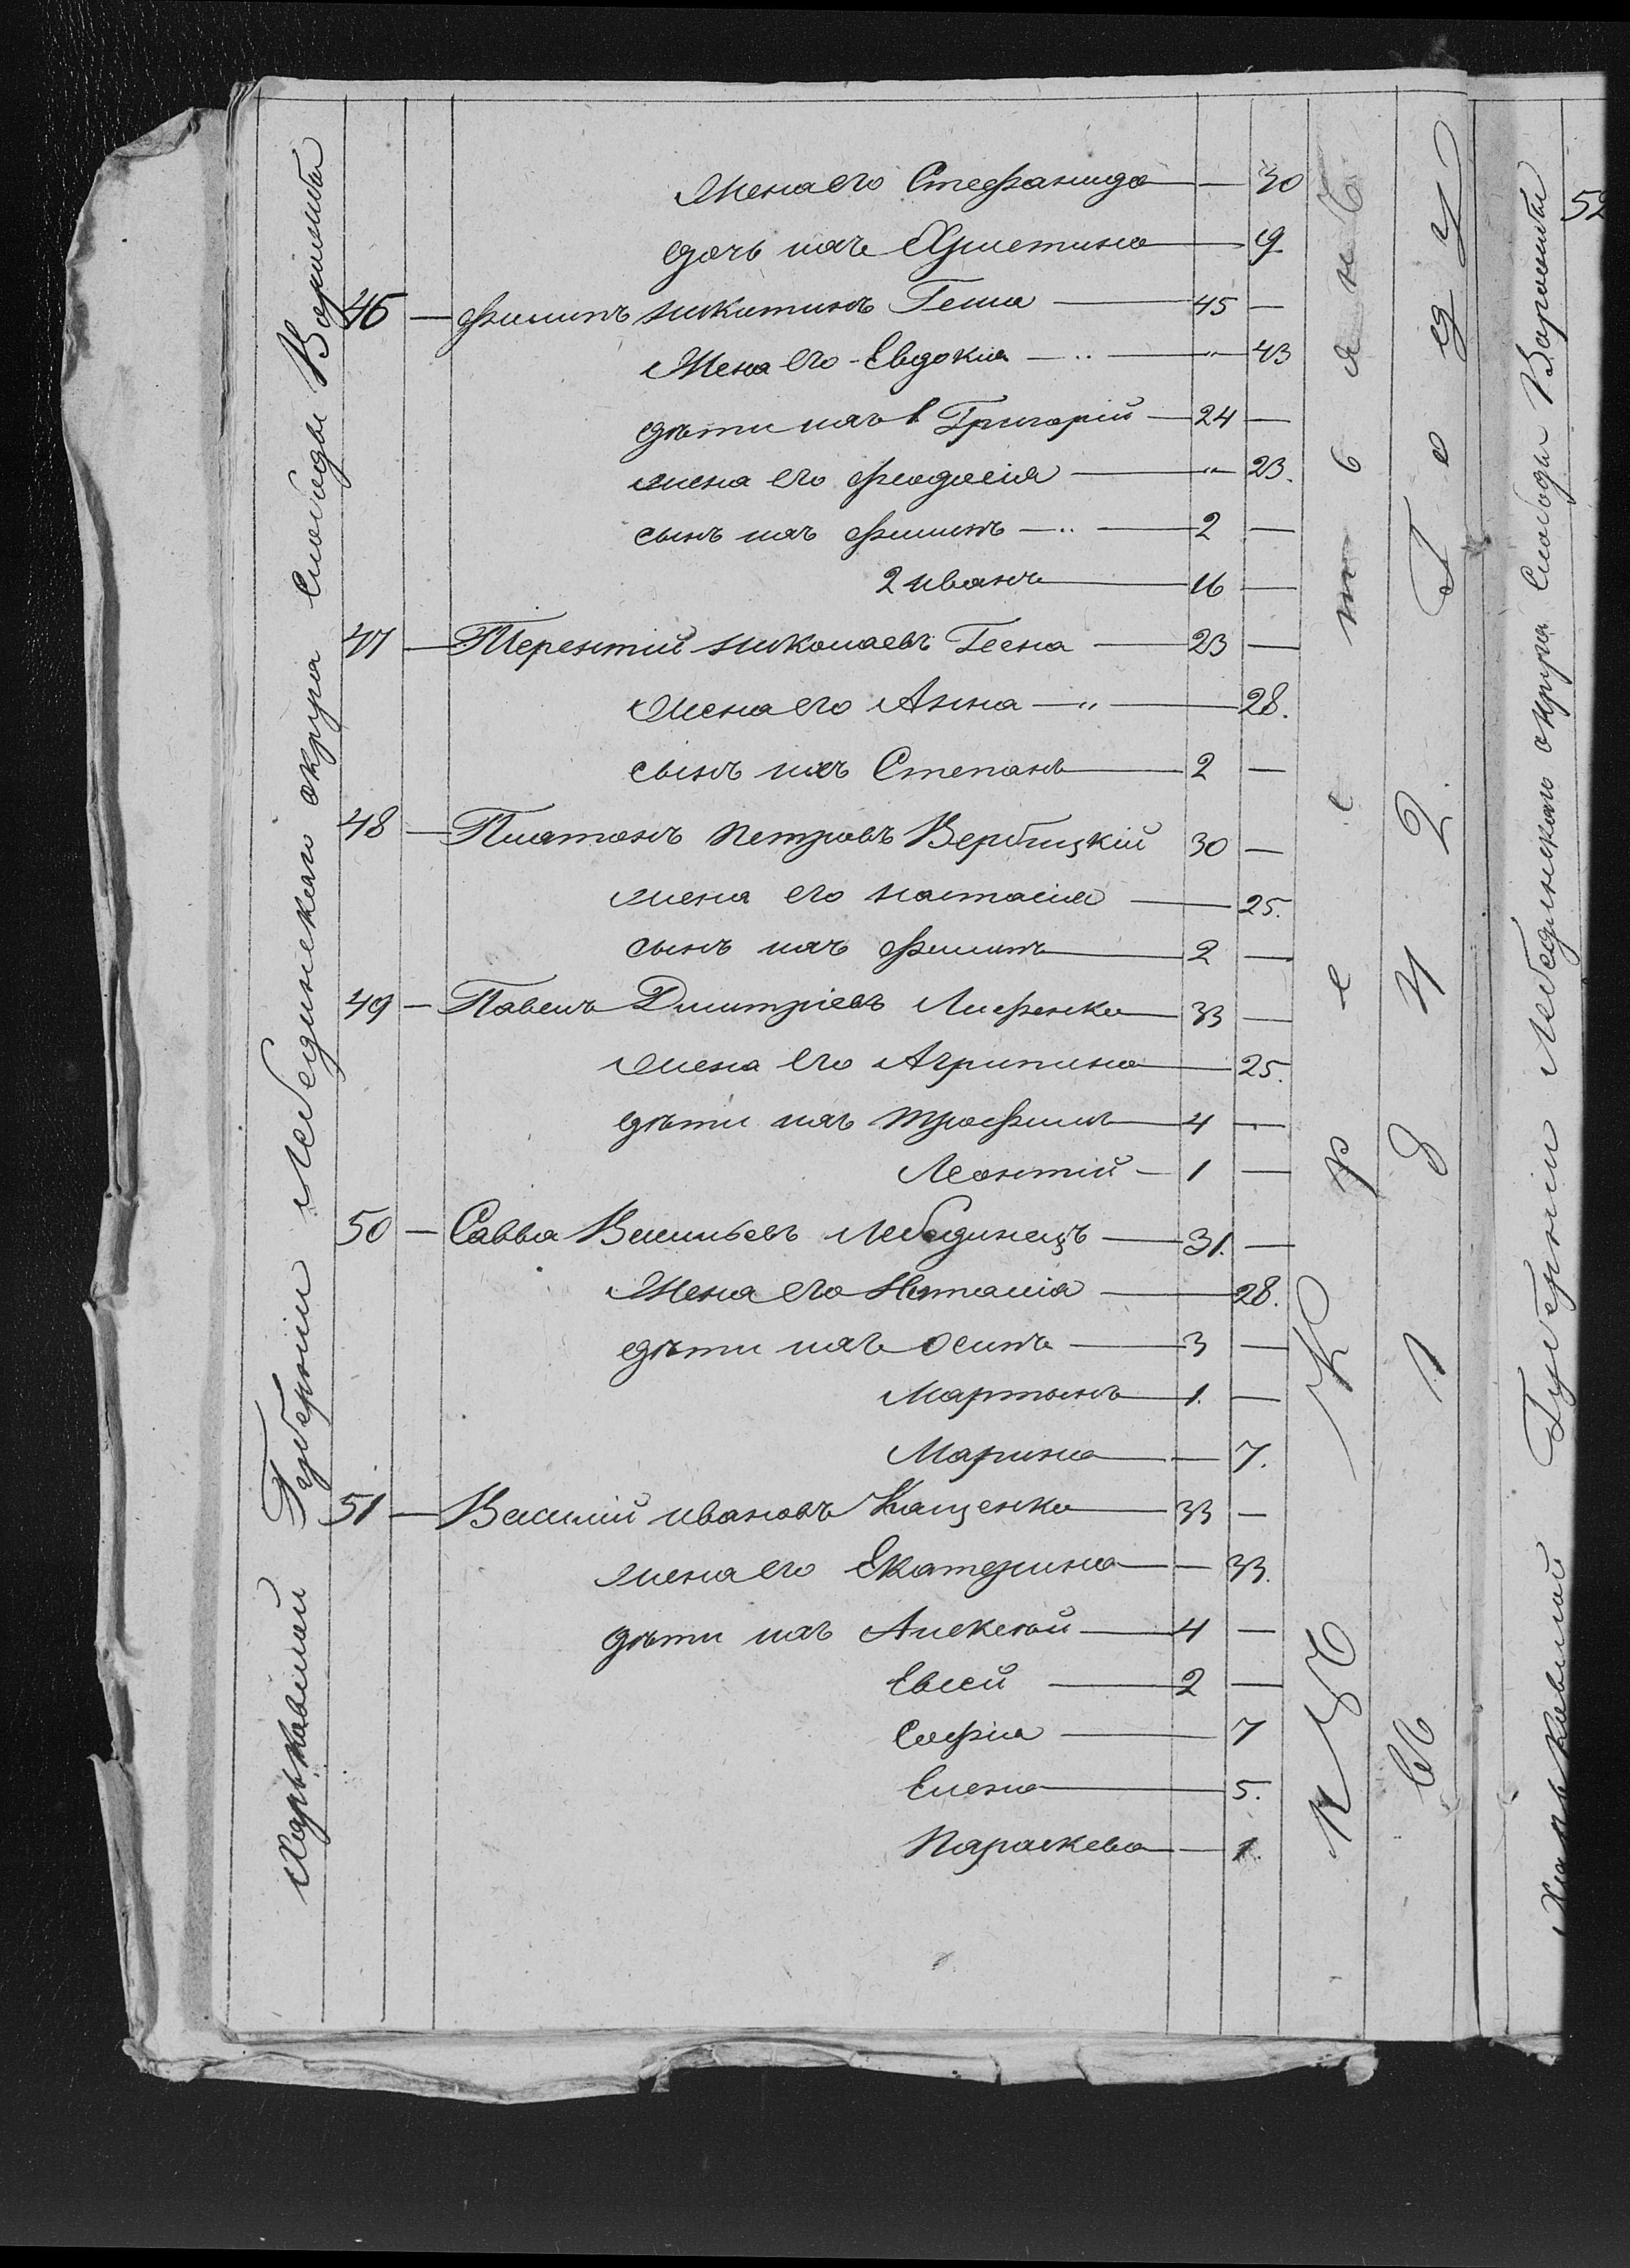 Харьковской Губерніи Лебединскаго округа Слободы Ворожбы
Жена его Стефанида — 30
дочь ихъ Христина — 9
46 — Филипъ Никитинъ Геша — 45 —
Жена его Евдокия — „ — 43
дѣти ихъ 1 Григорій — 24 —
жена его Феодосія — „ — 23.
сынъ ихъ Филипъ — „ — 2 —
2 иванъ — 16 —
47 — Терентий николаевъ Геена — 23 —
Жена его Анна — „ — 28.
сынъ ихъ Степанъ — 2 —
48 — Платонъ Петровъ Вербицкій 30 —
жена его настасия — 25.
сынъ ихъ Филипъ — 2 —
49 — Павелъ Дмитріевъ Лифенко — 33 —
жена его Агрипина — 25.
дѣти ихъ Трофимъ — 4 —
Леонтий — 1 —
50 — Савва Васильевъ Лебединецъ — 31. —
Жена его Наталия — 28.
дѣти ихъ Осипъ — 3 —
Мартынъ — 1. —
Марина — 7.
51 — Василий ивановъ Кащенко — 33 —
жена его Екатерина — 33.
дѣти ихъ Алексѣй — 4 —
Евсей — 2 —
Софиа — 7
Елена — 5.
Параскева — 1.
изъ Крестьянъ
съ 1842 Году
52
Харьковской Губерніи Лебединскаго округа Слободы Ворожбы